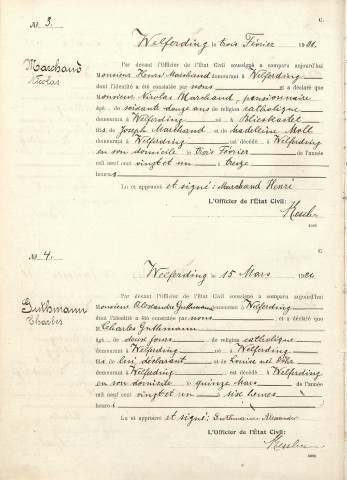 C.
№ 3.
Welferding le trois Février 1921.
Marchand
Nicolas
Par devant l'Officier de l'État Civil soussigné a comparu aujourd'hui
Monsieur Henri Marchand demeurant à Welferding
dont l'identité a été constatée par nous et a déclaré que
monsieur Nicolas Marchand, pensionnaire
âgé de soixante douze ans de religion catholique
demeurant à Welferding né à Blieskastel
fils de Joseph Marchand et Madeleine Moll
demeurant à Welferding est décédé à Welferding
en son domicile le trois Février de l'année
mil neuf cent vingt et un à treize
heures
Lu et approuvé et signé: Marchand Henri
L'Officier de l'État Civil:
C.
№ 4.
Welferding le 15 Mars 1921
Guthmann
Charles
Par devant l'Officier de l'État Civil soussigné a comparu aujourd'hui
monsieur Alexandre Guthmann demeurant à Welferding
dont l'identité a été constatée par nous et a déclaré que
le Charles Guthmann
âgé de deux jours de religion catholique
demeurant à Welferding né à Welferding
fils de lui déclarant et Louise née
demeurant à Welferding est décédé à Welferding
en son domicile le quinze Mars de l'année
mil neuf cent vingt et un à six heures
heures
Lu et approuvé et signé: Guthmann Alexander
L'Officier de l'État Civil: